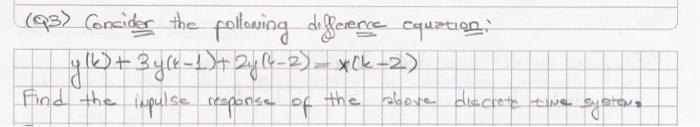 (Q3) Consider the following difference equation:
y(k) + 3y(k-1) + 2y(k-2) = x(k-2)
Find the impulse response of the above discrete time system.